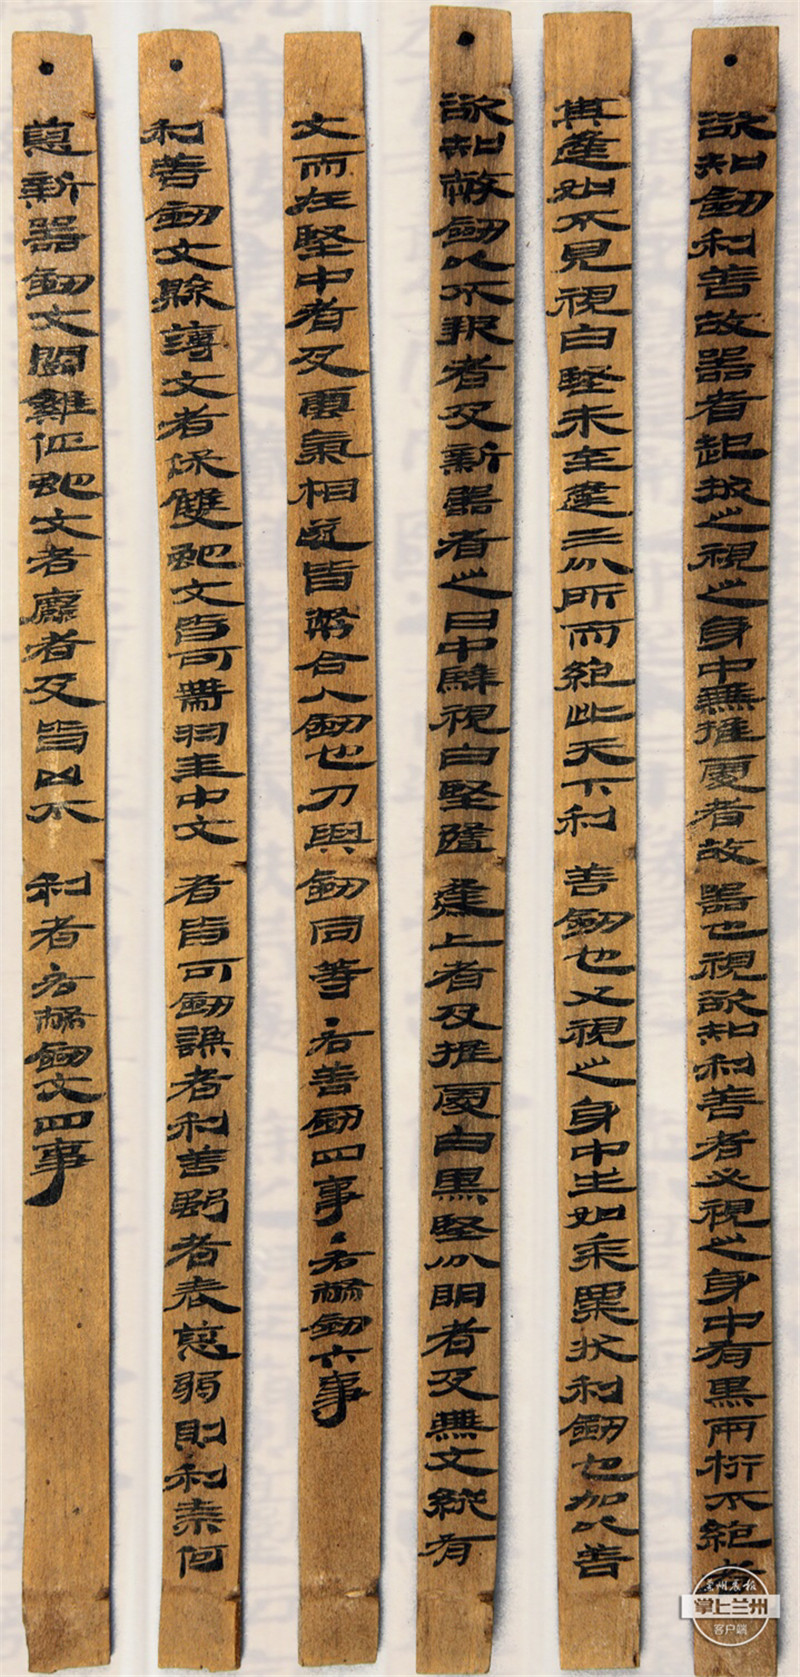 欲知劍利善故器者起拔之視之身中無推處者故器也視欲知利善者必視之身中有黑兩桁不絕者
其逢如不見視白堅未至逢三分所而絕此天下利善劍也又視之身中生如黍粟狀利劍也加以善
欲知幣劍以不報者及新器者之日中騂視白堅隨逢上者及推處白黑堅分明者及無文縱有
文而在堅中者及雲氣相遂皆幣合人劍也刀與劍同等·右善劍四事·右幣劍六事
利善劍文縣薄文者保雙蛇文皆可帶羽圭中文者皆可劍謙者利善強者表恿弱則利奈何
恿新器劍文鬬雞佂蛇文者麤者及皆凶不利者右幣劍文四事
兰州晨报
掌上兰州
客户端